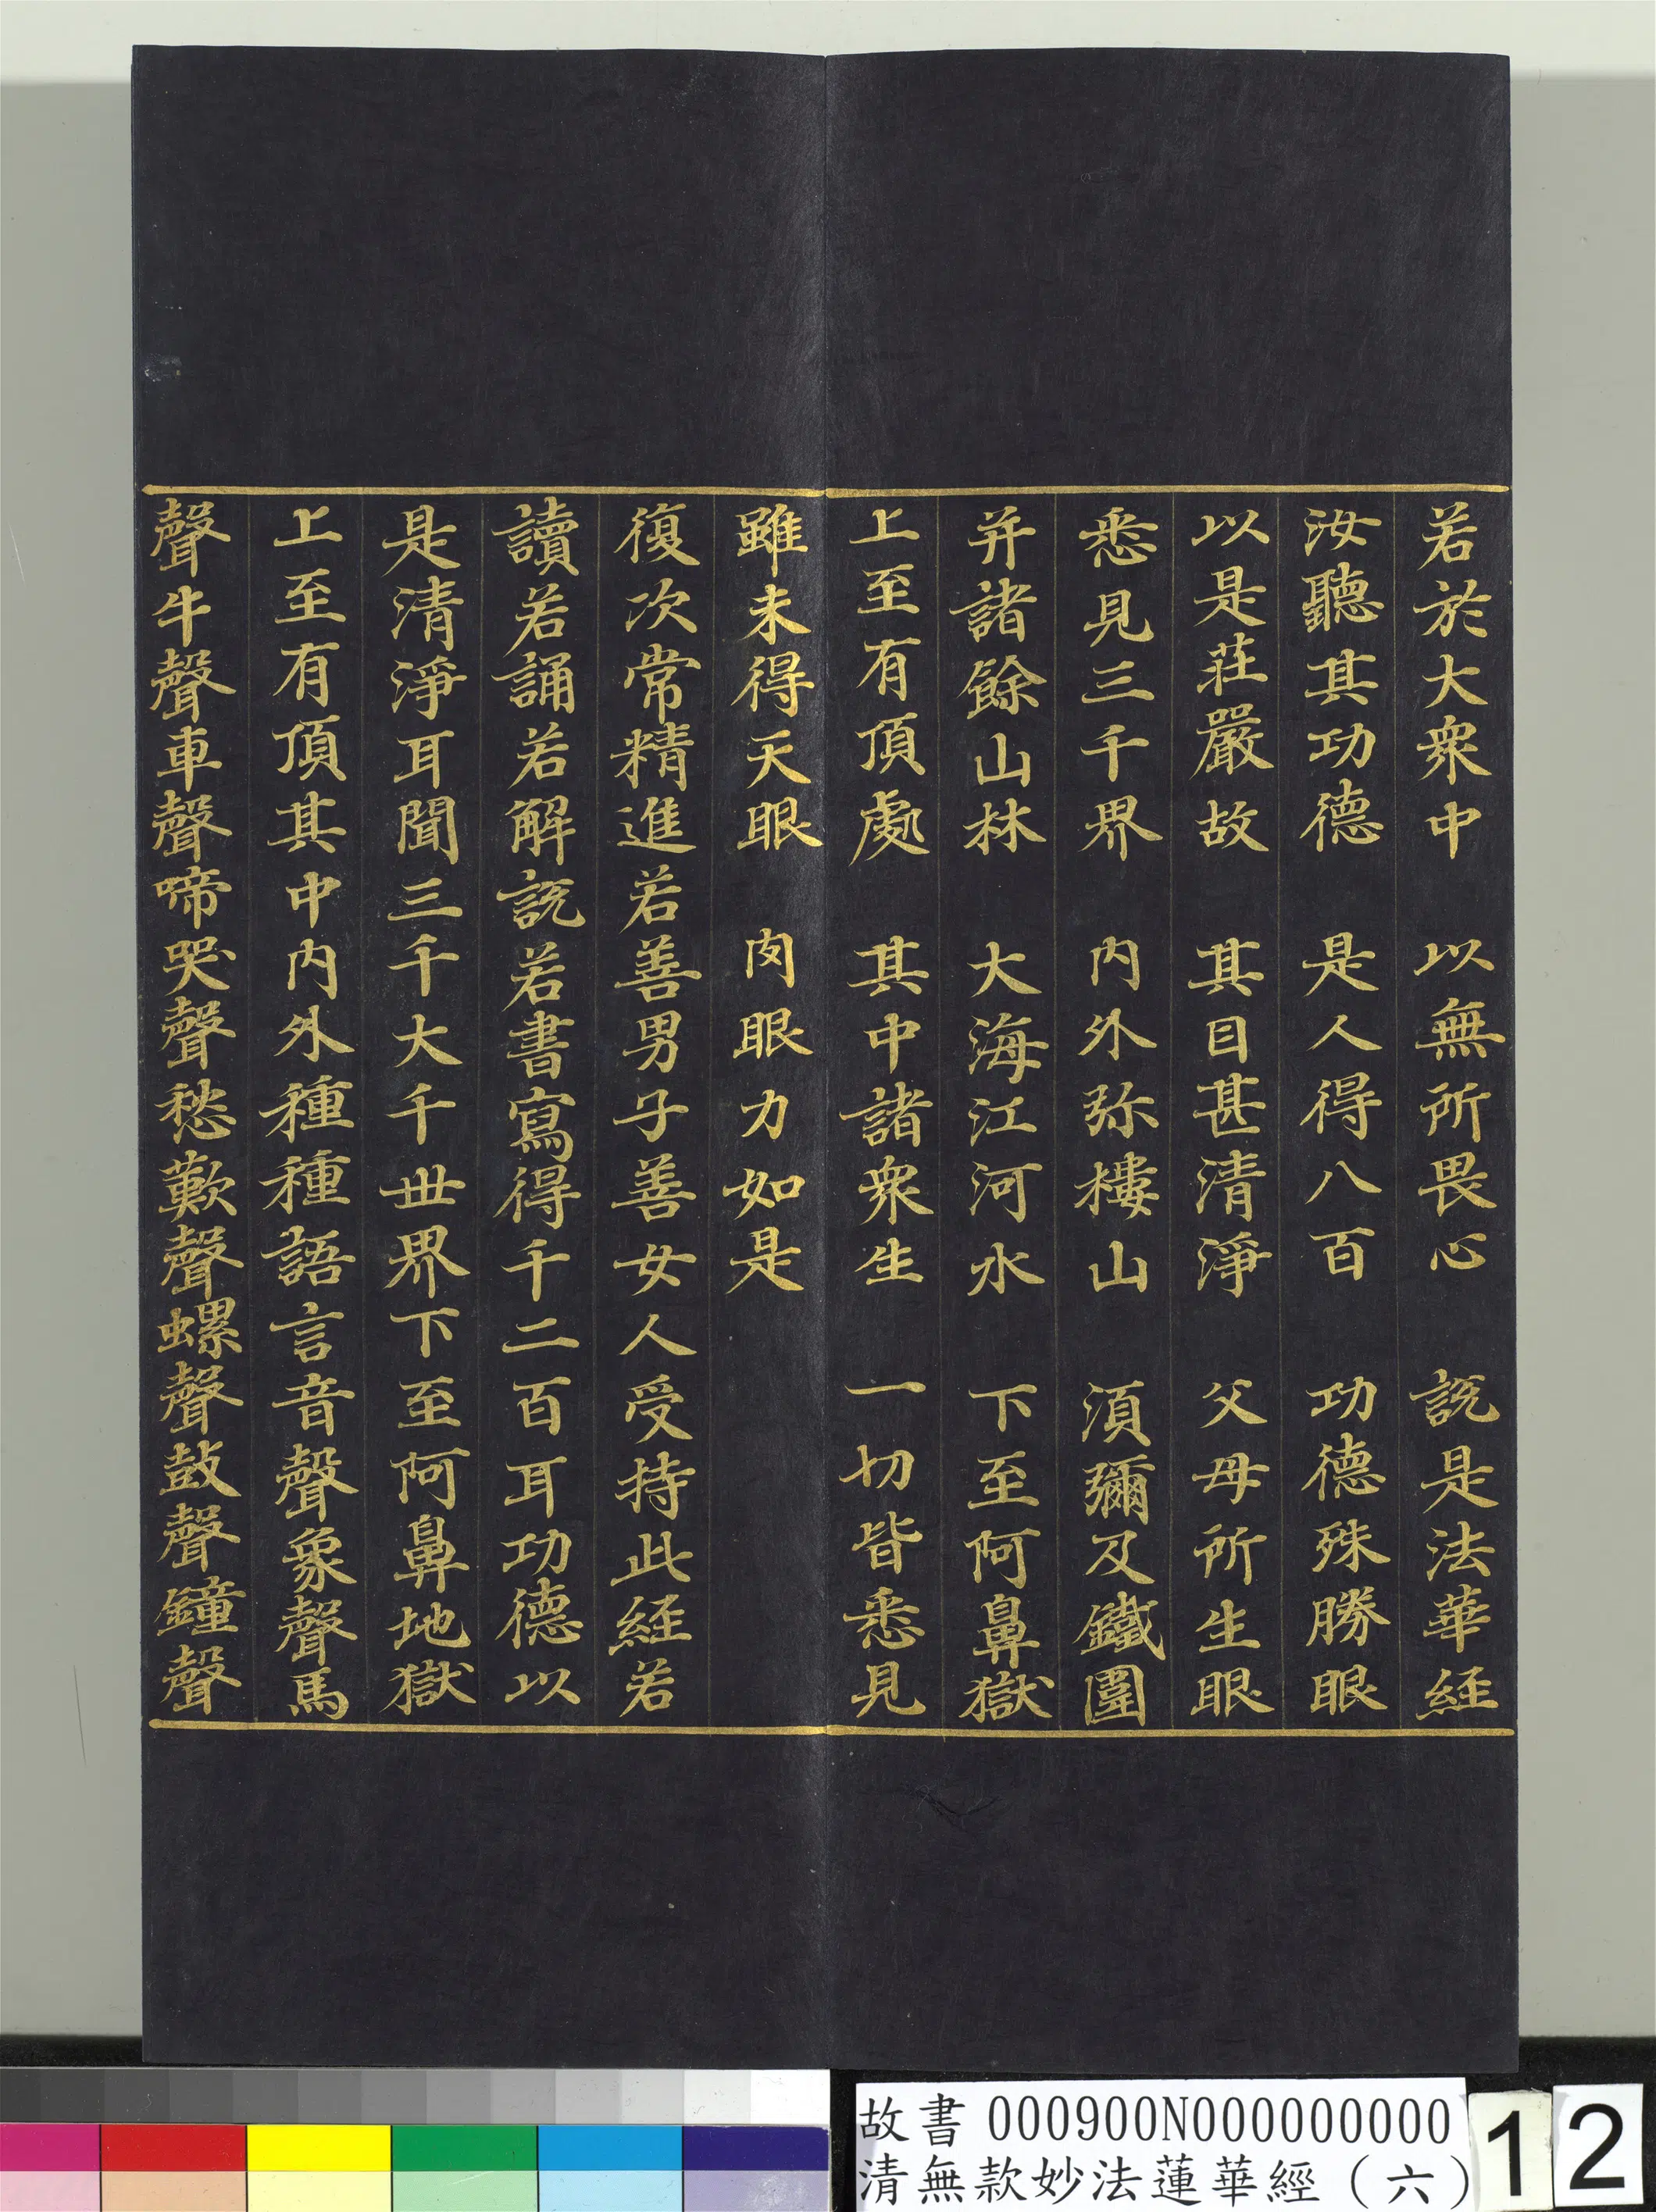 若於大衆中　以無所畏心　說是法華經
汝聽其功德　是人得八百　功德殊勝眼
以是莊嚴故　其目甚清淨　父母所生眼
悉見三千界　内外弥樓山　須彌及鐵圍
并諸餘山林　大海江河水　下至阿鼻獄
上至有頂處　其中諸衆生　一切皆悉見
雖未得天眼　肉眼力如是
復次常精進若善男子善女人受持此經若
讀若誦若解說若書寫得千二百耳功德以
是清淨耳聞三千大千世界下至阿鼻地獄
上至有頂其中内外種種語言音聲象聲馬
聲牛聲車聲啼哭聲愁歎聲螺聲鼓聲鐘聲
故書 000900N000000000
清無款妙法蓮華經（六）
12